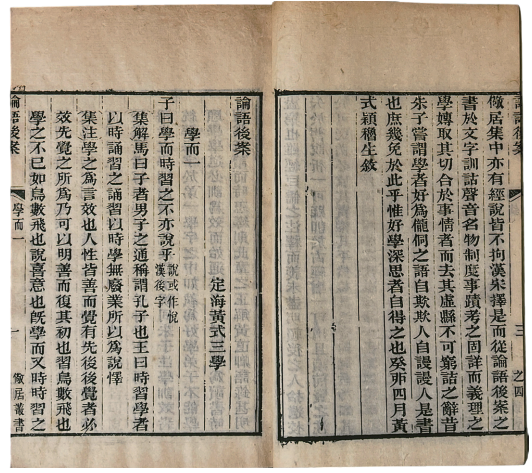 論語後案
三
之四
儆居集中亦有經說皆不拘漢宋擇是而從論語後案之
書於文字訓詁聲音名物制度事蹟考之固詳而義理之
學專取其切合於事情者而去其虛縣不可窮詰之辭昔
朱子嘗謂學者好為儱侗之語自欺欺人自謾謾人是書
也庶幾免於此乎惟好學深思者自得之也癸卯四月黃
式穎穗生敘
論語後案
定海黃式三學
學而一
子曰學而時習之不亦說乎說或作悅漢後字
集解馬曰子者男子之通稱謂孔子也王曰時習學者
以時誦習之誦習以時學無廢業所以為說懌
集注學之為言效也人性皆善而覺有先後後覺者必
效先覺之所為乃可以明善而復其初也習鳥數飛也
學之不已如鳥數飛也說喜意也旣學而又時時習之
論語後案
學而一
一
儆居叢書